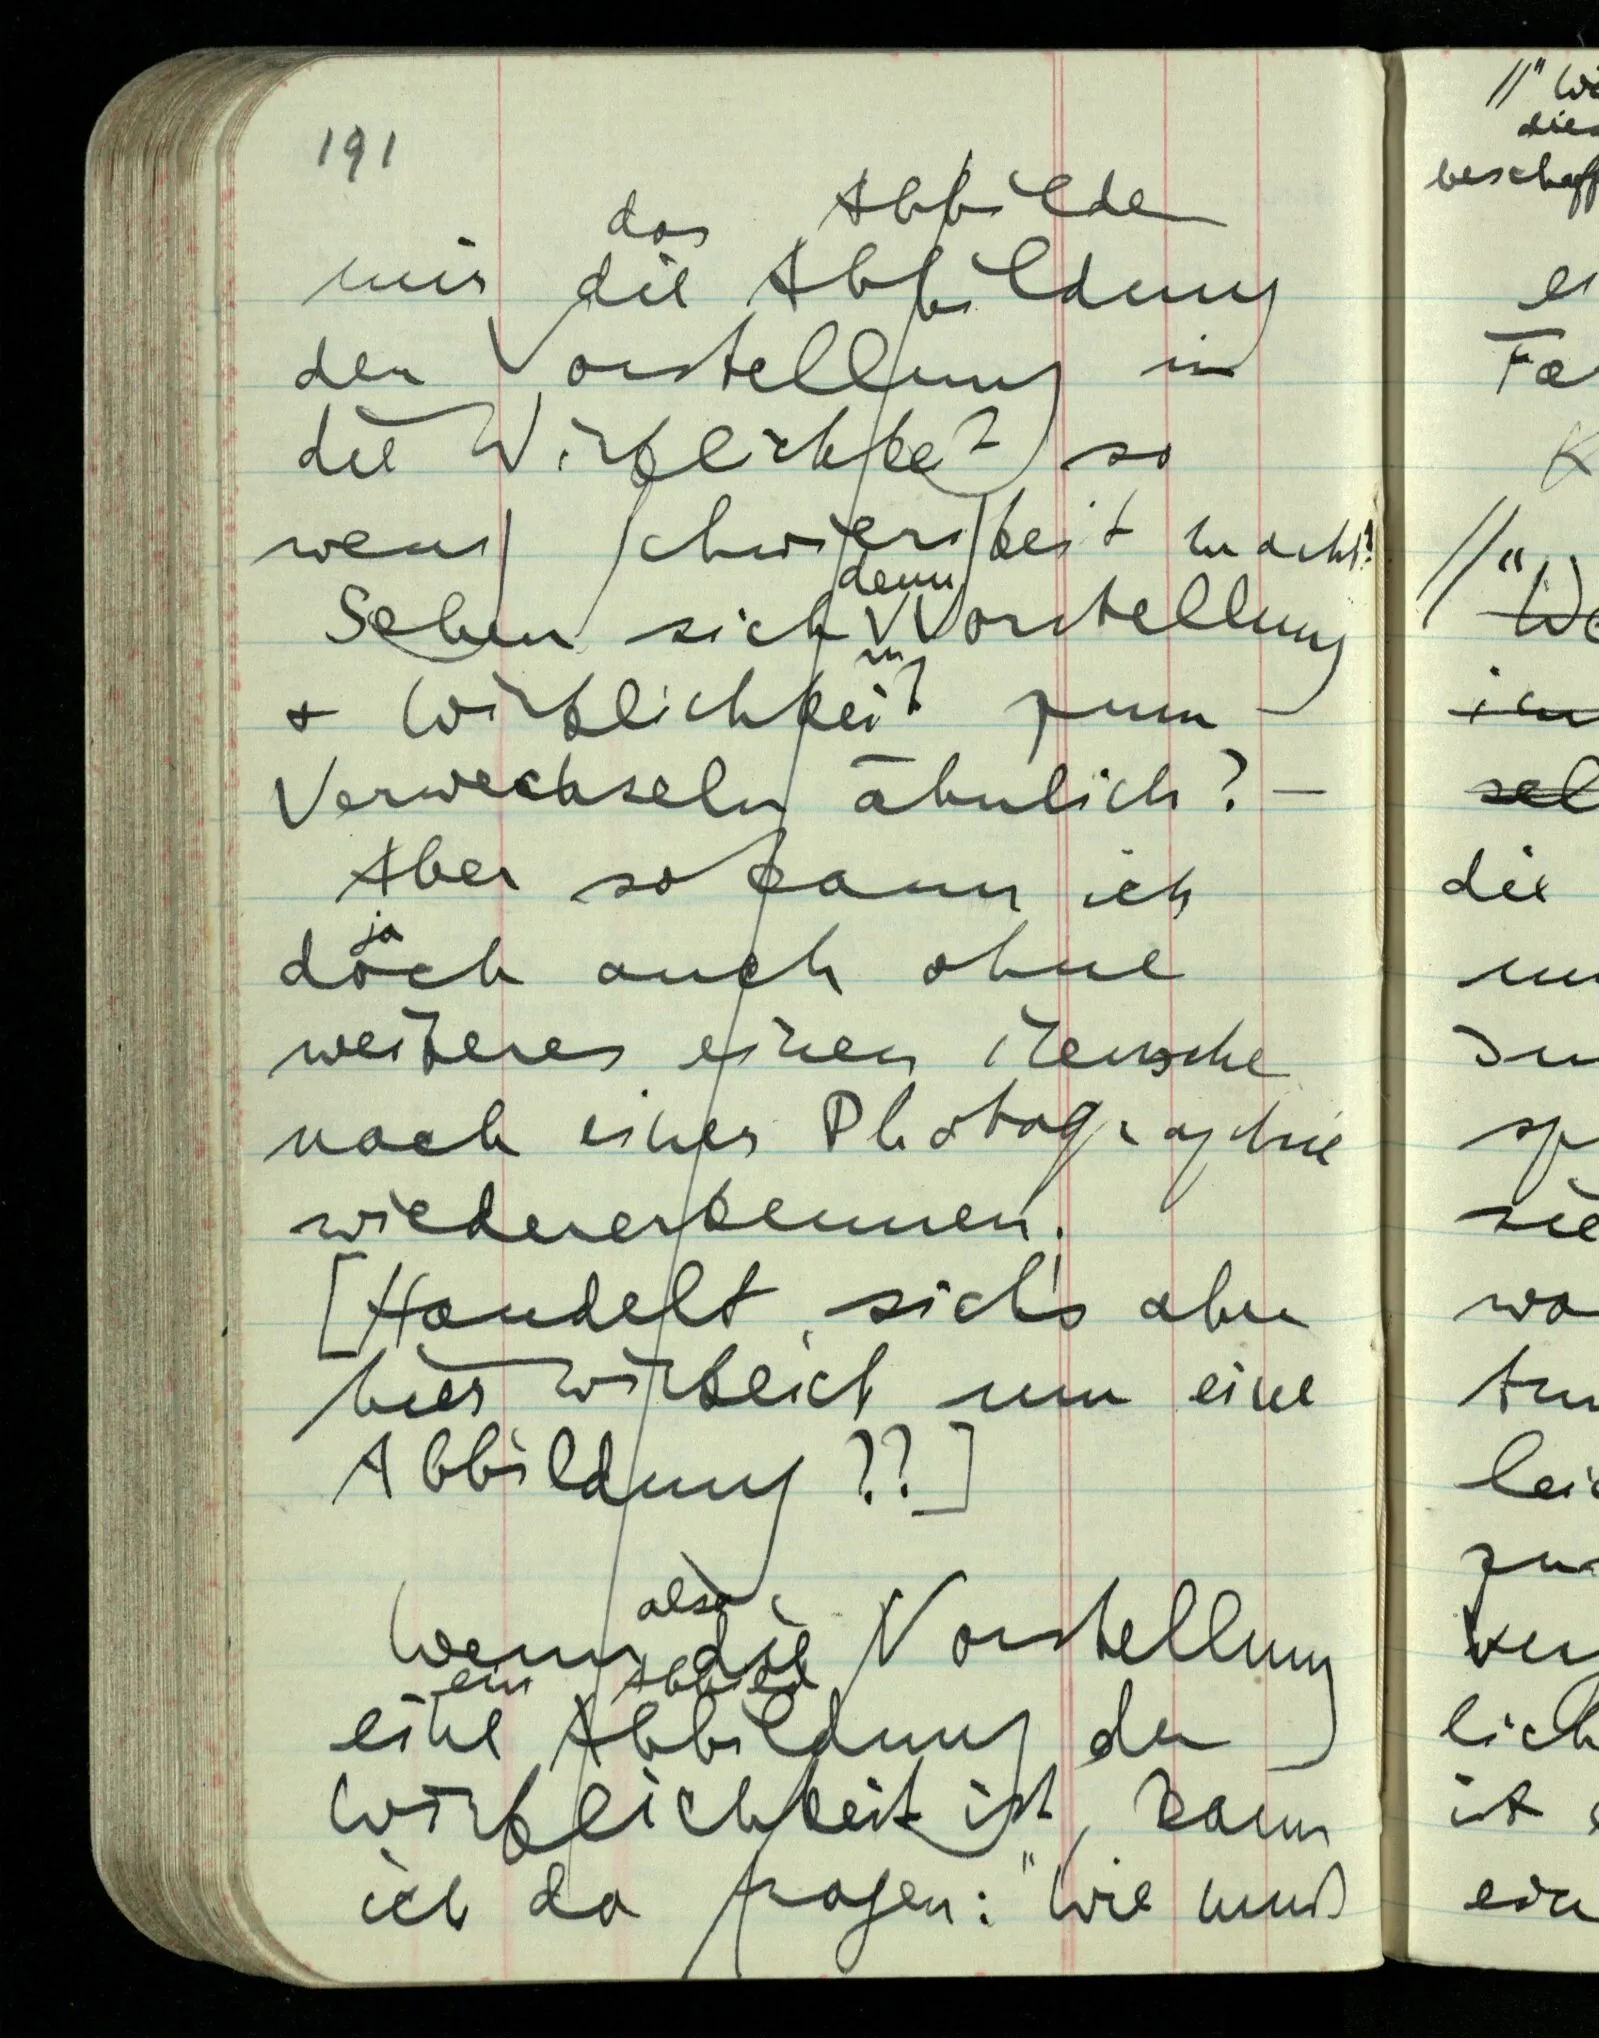 191
das Abbilden
mir die Abbildung
der Vorstellung in
die Wirklichkeit so
wenig Schwierigkeit macht?
denn
Sehen sich Vorstellung
& Wirklichkeit zum
Verwechseln ähnlich? —
Aber so kann ich
ja
doch auch ohne
weiteres einen Menschen
nach einer Photographie
wiedererkennen.
[Handelt sich's aber
hier wirklich um eine
Abbildung ??]
also
Wenn die Vorstellung
ein Abbild
eine Abbildung der
Wirklichkeit ist, kann
ich da fragen: "Wie muß
//"Wi
dies
beschaff
//"We
die